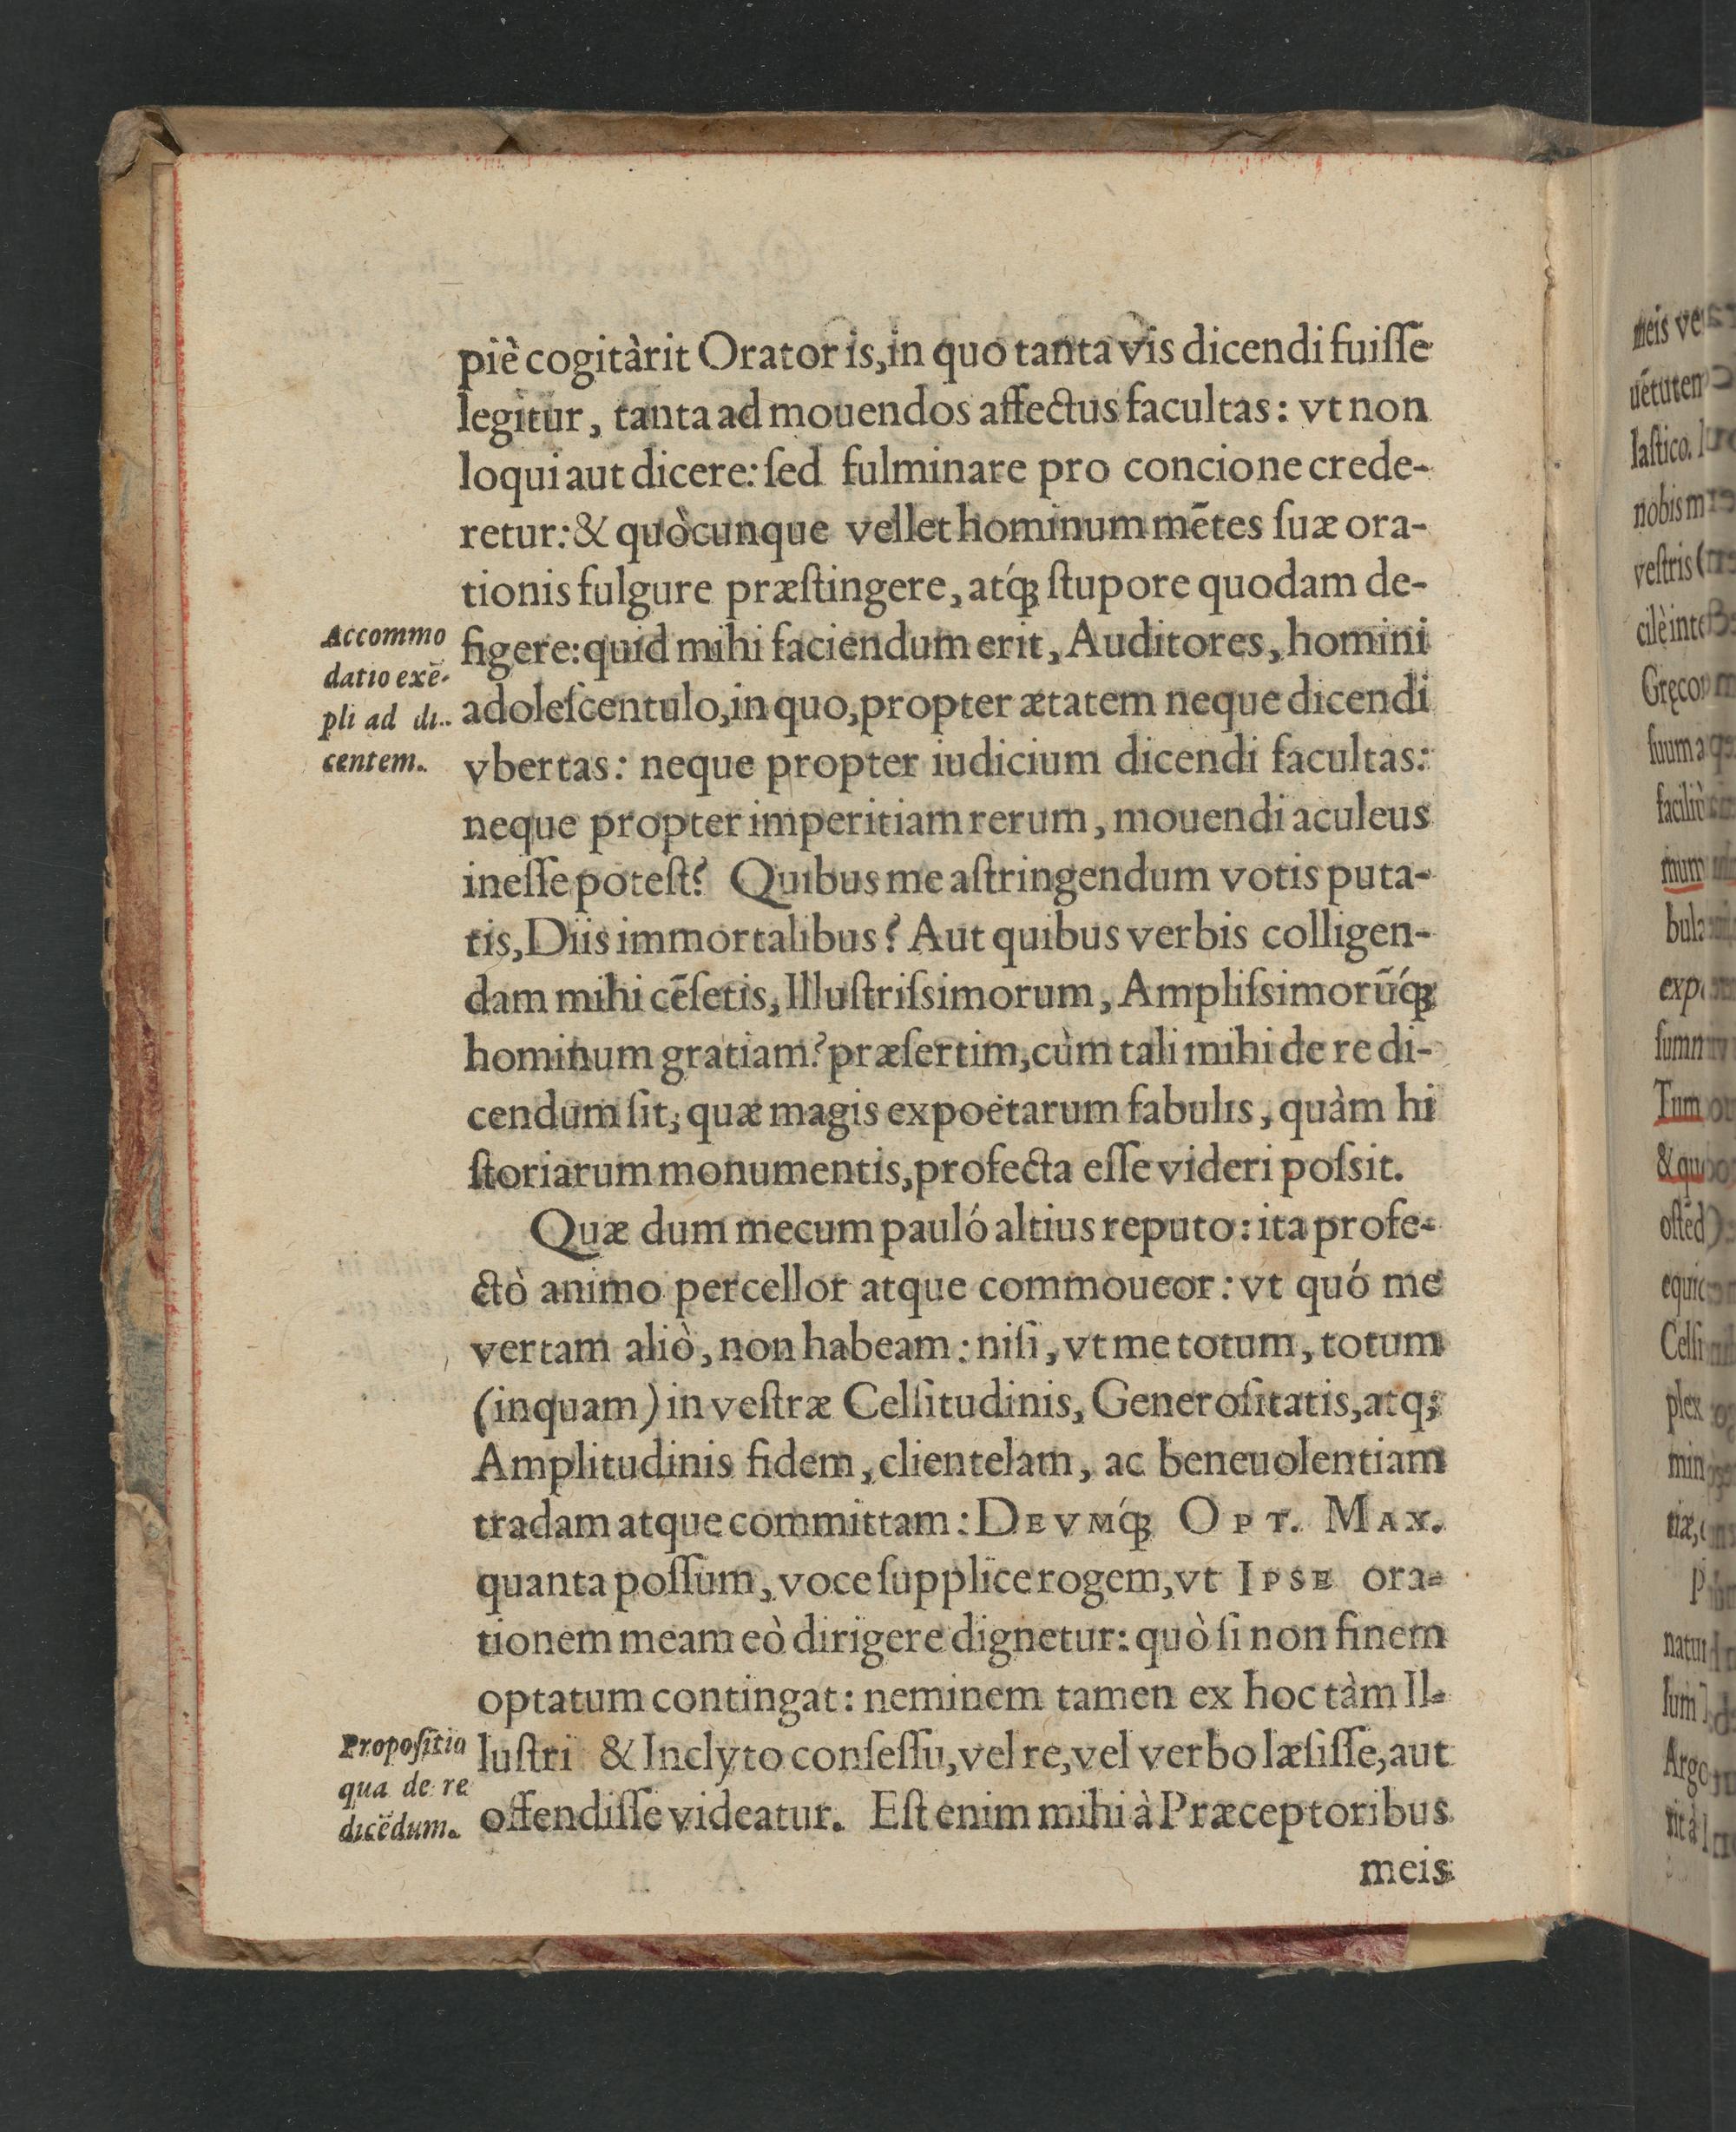 piè cogitàrit Orator is, in quo tanta vis dicendi fuiſſe
legitur, tanta ad mouendos affectus facultas: vt non
loqui aut dicere: ſed fulminare pro concione crede-
retur: & quòcunque vellet hominum mẽtes ſuæ ora-
tionis fulgure præſtingere, atq́ꝫ ſtupore quodam de-
Accommo
datio exẽ-
pli ad di-
centem.
figere: quid mihi faciendum erit, Auditores, homini
adoleſcentulo, in quo, propter ætatem neque dicendi
vbertas: neque propter iudicium dicendi facultas:
neque propter imperitiam rerum, mouendi aculeus
ineſſe poteſt? Quibus me aſtringendum votis puta-
tis, Diis immortalibus? Aut quibus verbis colligen-
dam mihi cẽſetis, Illuſtriſsimorum, Ampliſsimorũq́ꝫ
hominum gratiam? præſertim, cùm tali mihi de re di-
cendum ſit, quæ magis ex poëtarum fabulis, quàm hi
ſtoriarum monumentis, profecta eſſe videri poſsit.
Quæ dum mecum pauló altius reputo: ita profe-
ctò animo percellor atque commoueor: vt quó me
vertam aliò, non habeam: niſi, vt me totum, totum
(inquam) in veſtræ Celſitudinis, Generoſitatis, atq;
Amplitudinis fidem, clientelam, ac beneuolentiam
tradam atque committam: DEVMq́ꝫ OPT. MAX.
quanta poſſum, voce ſupplice rogem, vt IPSE ora-
tionem meam eò dirigere dignetur: quò ſi non finem
optatum contingat: neminem tamen ex hoc tàm Il-
Propoſitio
qua de re
dicẽdum.
luſtri & Inclyto conſeſſu, vel re, vel verbo læſiſſe, aut
offendiſſe videatur. Eſt enim mihi à Præceptoribus
meis